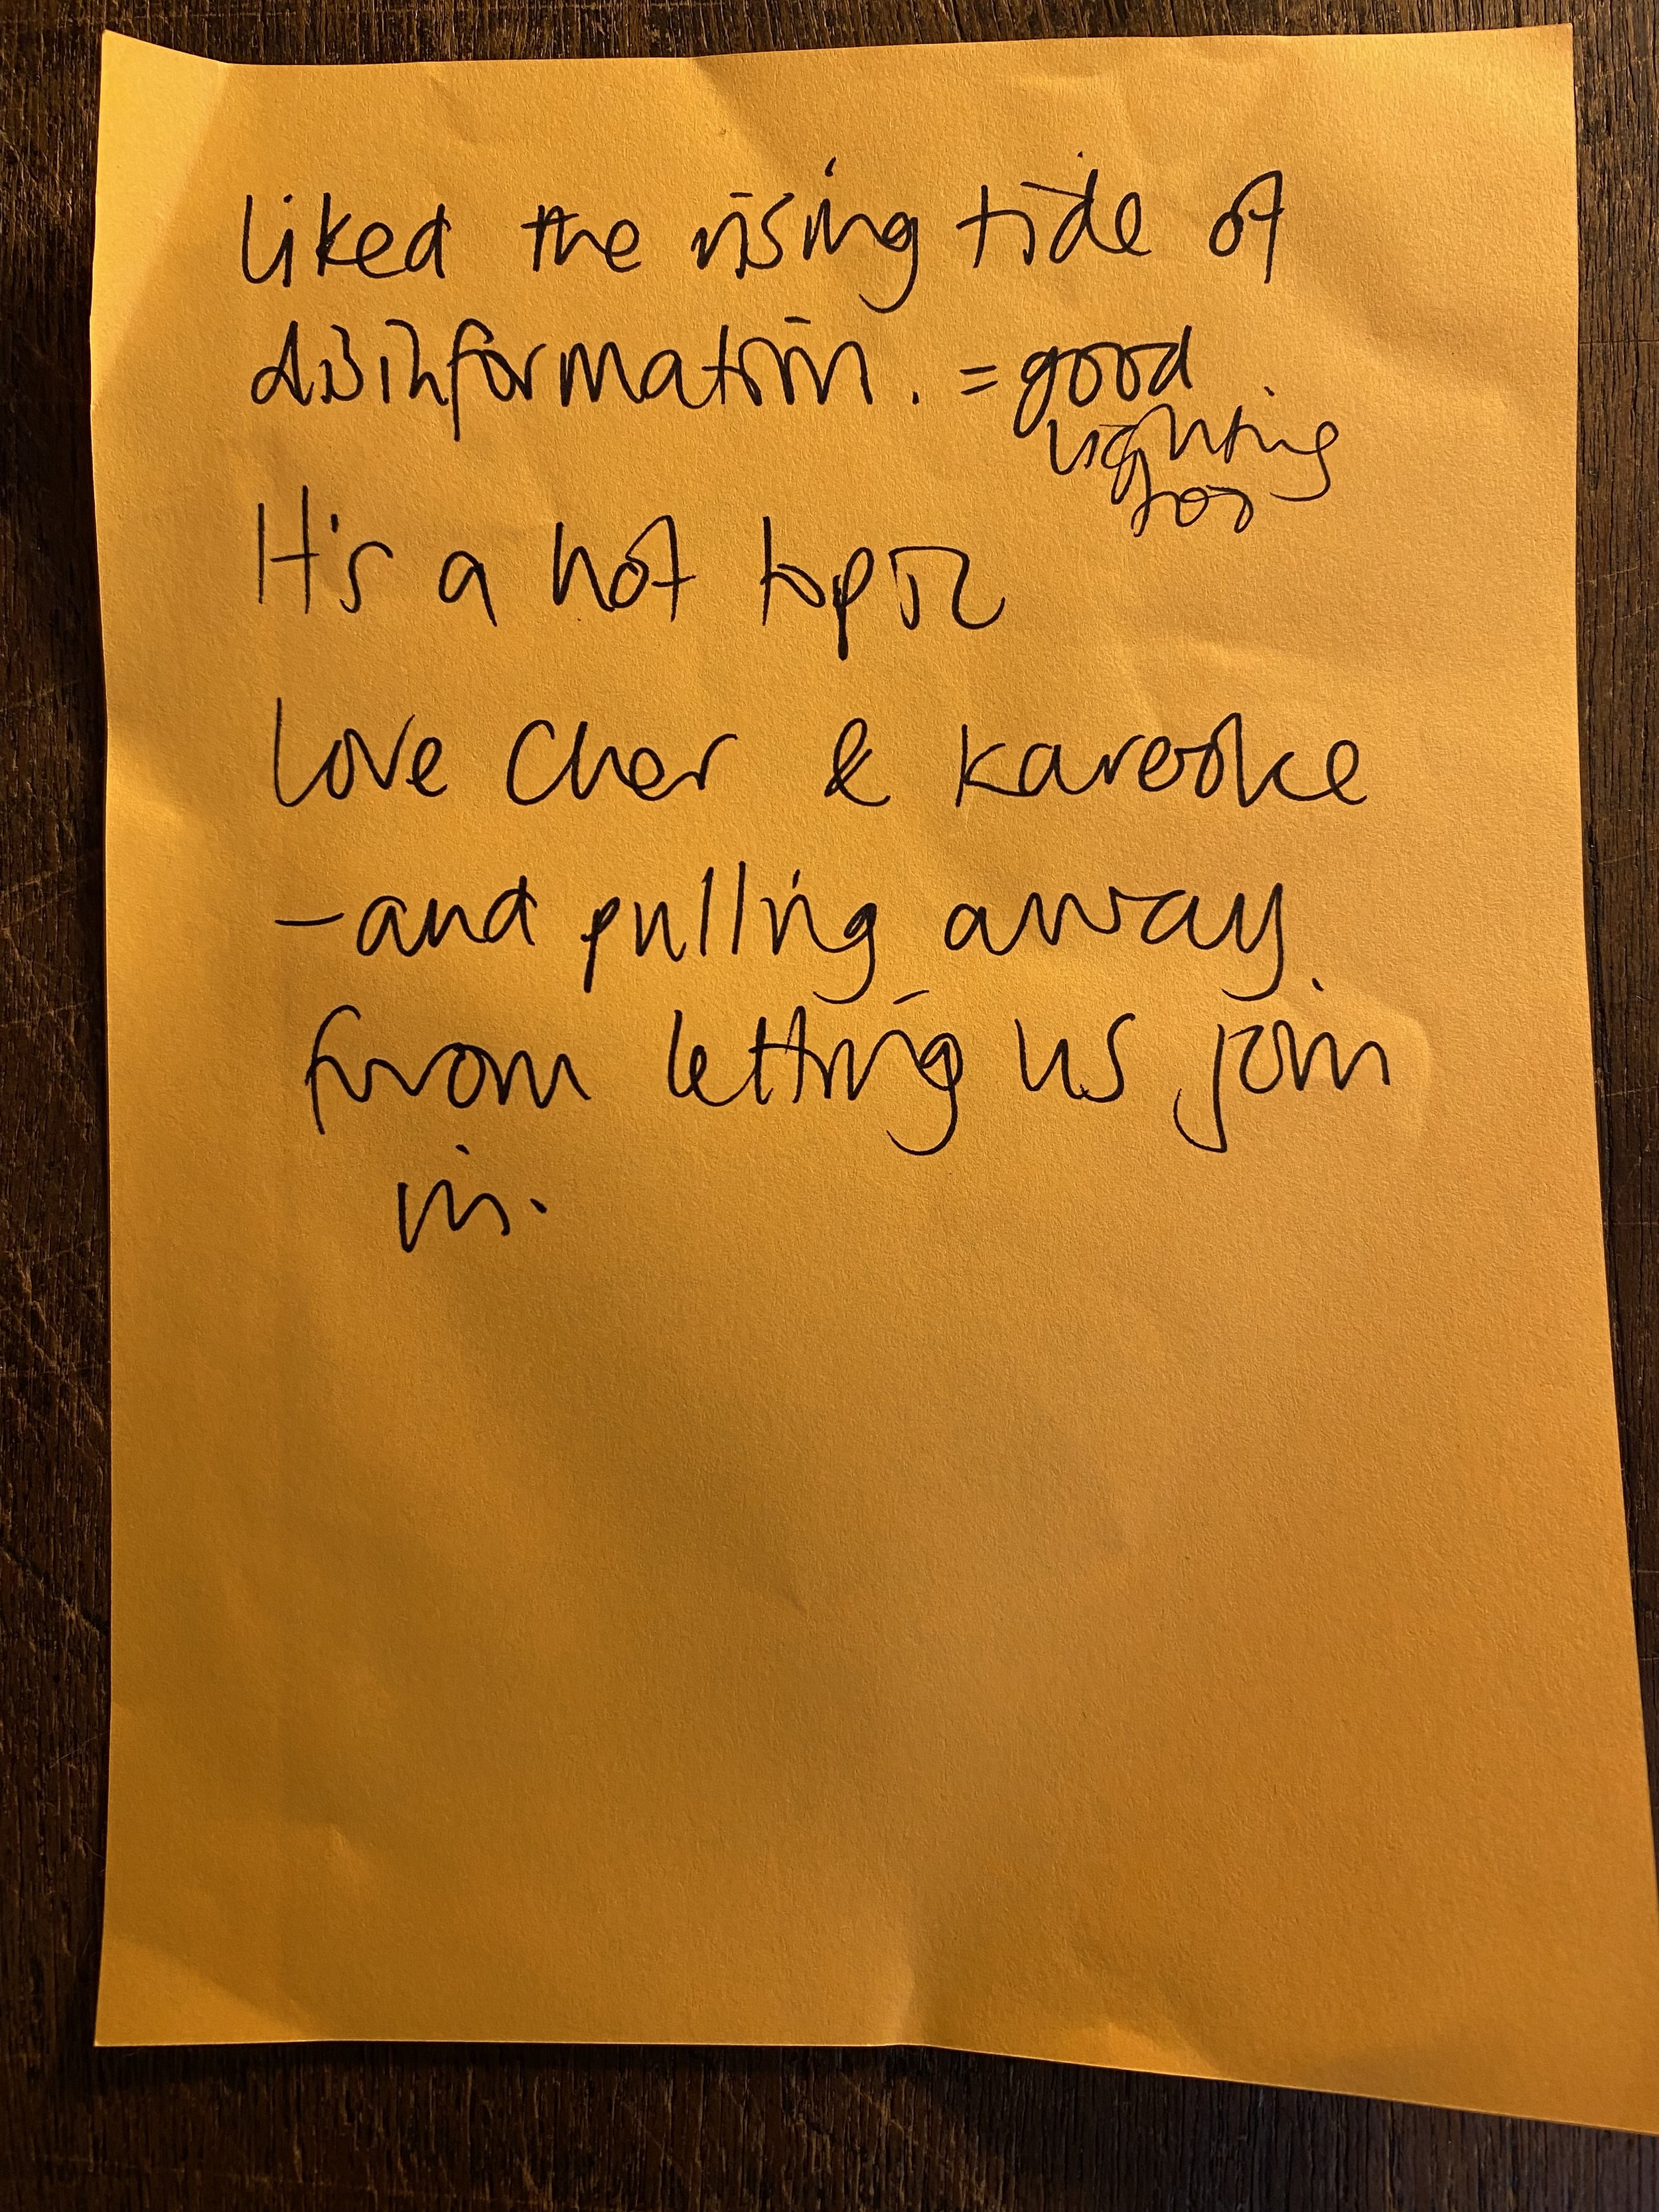 liked the rising tide of
disinformation. = good
lighting
too
It's a hot topic
love Cher & kareoke
- and pulling away
from letting us join
in.